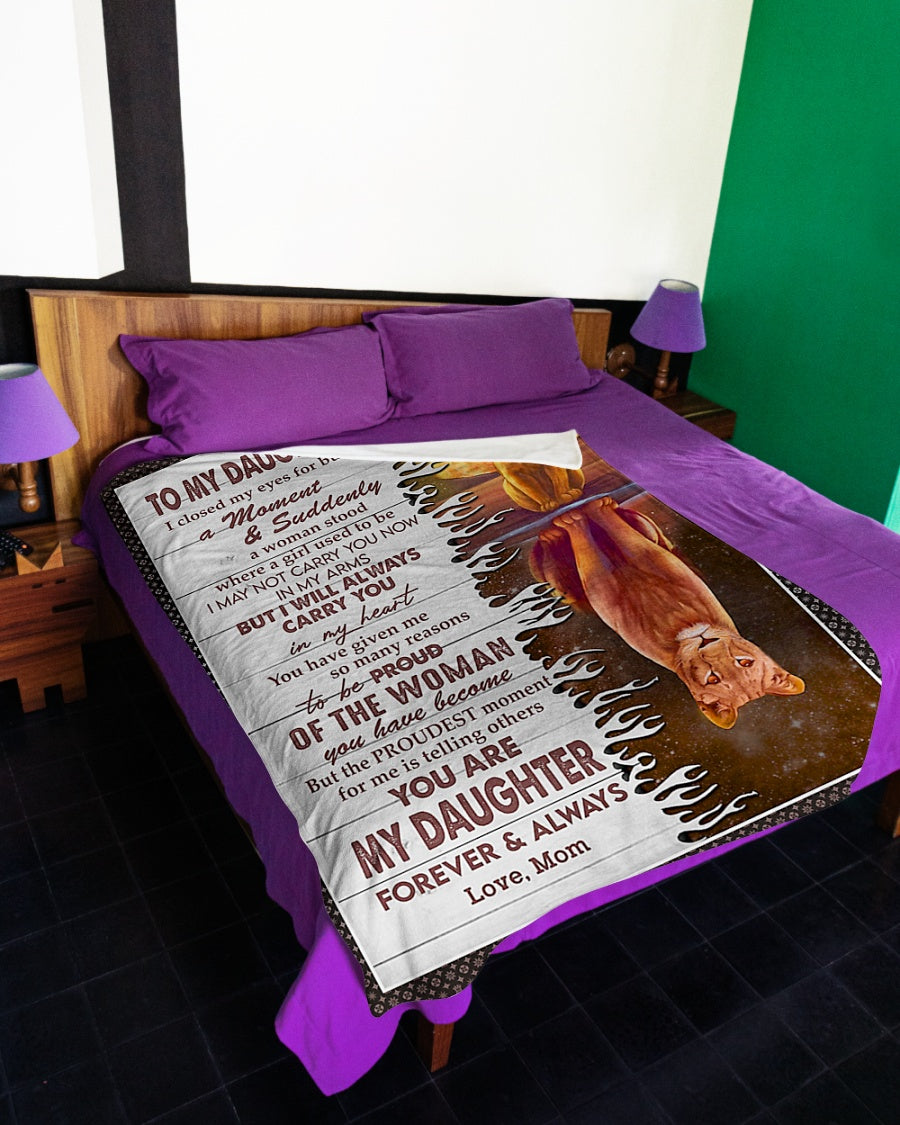 TO MY
I closed my eyes for
a Moment
& Suddenly
a woman stood
where a girl used to be
I MAY NOT CARRY YOU NOW
IN MY ARMS
BUT I WILL ALWAYS
CARRY YOU
in my heart
You have given me
so many reasons
to be PROUD
OF THE WOMAN
you have become
But the PROUDEST moment
for me is telling others
YOU ARE
MY DAUGHTER
FOREVER & ALWAYS
Love, Mom